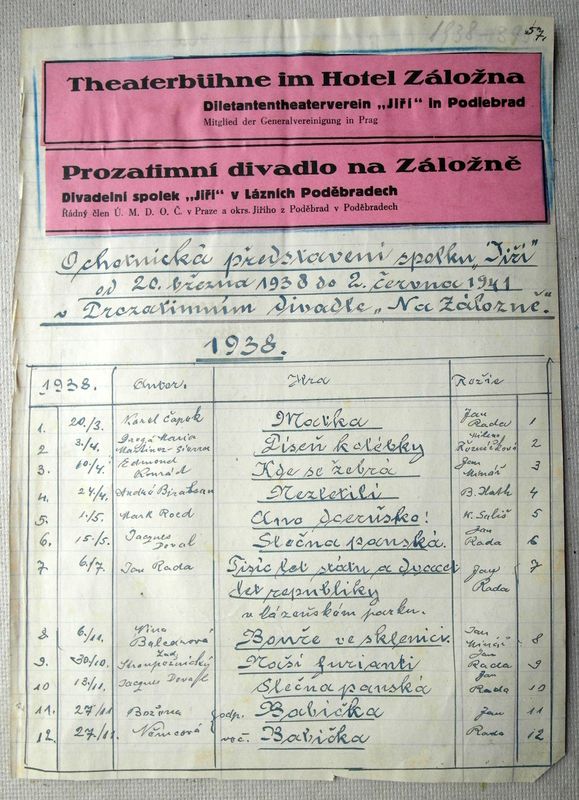 1938-39
57.
Theaterbühne im Hotel Záložna
Diletantentheaterverein „Jiří“ in Podiebrad
Mitglied der Generalvereinigung in Prag
Prozatimní divadlo na Záložně
Divadelní spolek „Jiří“ v Lázních Poděbradech
Řádný člen Ú. M. D. O. Č. v Praze a okrs. Jiřího z Poděbrad v Poděbradech
Ochotnická představení spolku „Jiří“
od 20. března 1938 do 2. června 1941
v Prozatimním divadle „Na Záložně.“
1938.
1938. Autor. Hra Režie
1. 20./3. Karel Čapek Matka Jan Rada 1
2 3./4. Maria Martinez-Sierra Píseň kolébky Řezníčková 2
3. 10./4. Edmond Konrád Kde se žebrá Jan Mináš 3
4. 24./4. André Birabeau Nezletilí B. Hath 4
5. 1./5. Mark Reed Ano dceruško! K. Suliš 5
6. 15./5. Jacques Deval Slečna panská. Jan Rada 6
7 6./7. Jan Rada Tisíc let státu a dvacet Jan Rada 7
let republiky
v lázeňském parku.
8. 6./11. Bouře ve sklenici. Jan Mináš 8
9. 30./10. Stroupežnický Naši furianti Jan Rada 9
10 13./11. Jacques Slečna panská Jan Rada 10
11. 27/11 Božena odp. Babička Jan 11
12. 27/11. Němcová več. Babička Rada 12